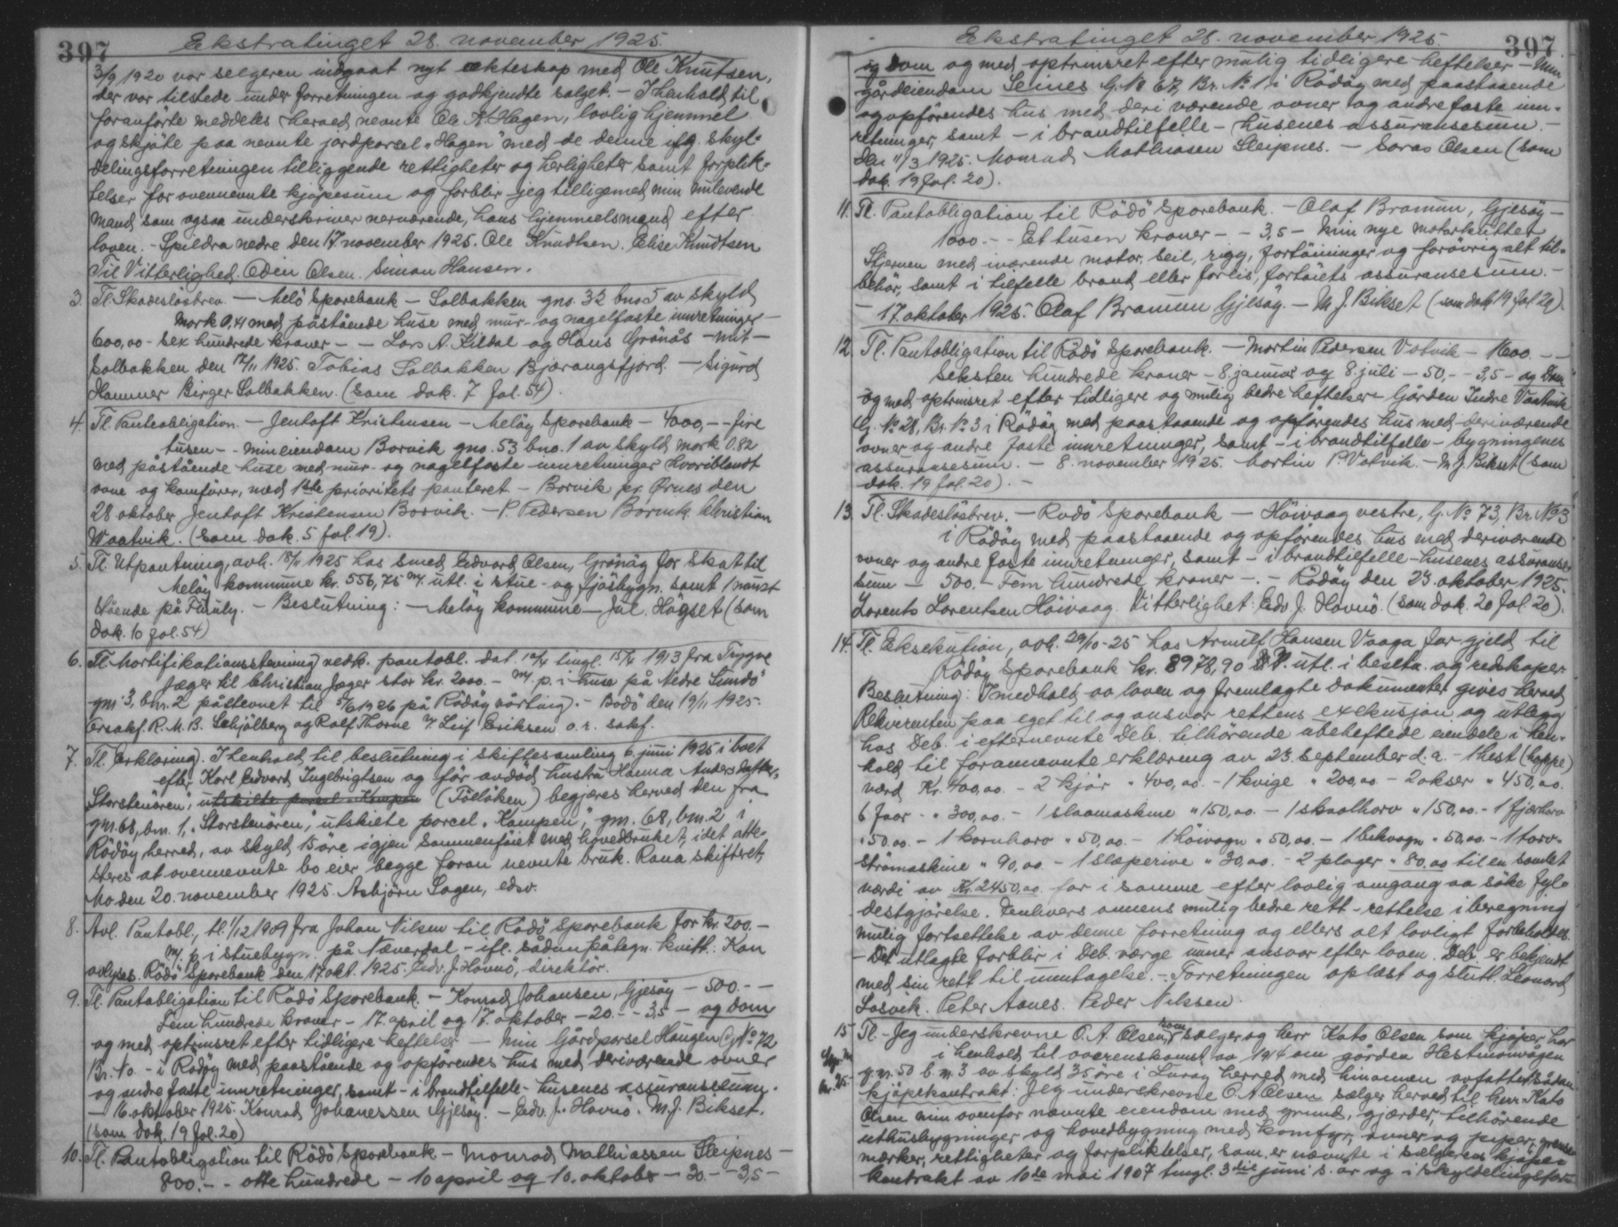 397 Ekstratinget 28. november 1925.
3/9 1920 var selgeren indgaat nyt ekteskap med Ole Knutsen,
der var tilstede under forretningen og godkjendte salget. - I henhold til
foranførte meddeles herved nevnte Ole A. Hagen, lovlig hjemmel
og skjøte paa nevnte jordparsel "Hagen" med de denne iflg. skyl-
delingsforretningen tilliggende rettigheter og herligheter samt forplik-
telser for ovennevnte kjøpesum og forblir jeg tilligemed min nulevende
mand som ogsaa underskriver nerværende, hans hjemmelsmand efter
loven. - Spildra nedre den 17 november 1925. Ole Knudtsen. Elise Knudtsen
Til Vitterlighed. Odin Olsen. Simon Hansen.
3. Tl. Skadesløsbrev. - Melø Sparebank - Solbakken gno. 32 bno 5 av skyld
Mark 0,41 med påstående huse med mur- og nagelfaste innretninger -
600,00 - sex hundrede kroner - - Lars A. Kildal og Hans Grønås - mit -
Solbakken den 17/11 1925. Tobias Solbakken Bjærangsfjord. - Sigurd
Hammer Birger Solbakken. (som dok. 7 fol. 54).
4. Tl. Panteobligation. - Jentoft Kristensen - Meløy Sparebank - 4000,- - fire
tusen - - min eiendom Borvik gno. 53 bno. 1 av skyld mark 0.82
med påstående huse med mur- og nagelfaste innretninger hvoriblandt
ovne og komfyrer, med 1ste prioritets panteret. - Borvik pr. Ørnes den
28 oktober Jentoft Kristensen Borvik. - P. Pedersen Borvik. Christian
Waatvik. (som dok. 5 fol. 19).
5. Tl. Utpantning, avh. 18/11 1925 hos smed Edvard Olsen, Grønøy for skat til
Meløy kommune kr. 556,75 m/ utl. i stue- og fjøsbygn. samt 1 naust
stående på . - Beslutning: - Meløy kommune - Jul. Høgset (som
dok. 10 fol. 54)
6. Tl. Mortifikationsstevning vedk. pantobl. dat. tingl. 15/4 1913 fra Trygve
Jæger til Christian Jæger stor kr. 2000.- m/ p. i huse på Nedre Sundø
gnr 3, bnr. 2 påstevnet til 1926 på Rødøy vårting. - Bodø den 19/11 1925.
Orsakf. R. M. B. Schjølberg og Rolf Thorne v/ Leif Eriksen o.r. sakf.
7. Tl. Erklæring. I henhold til beslutning i skiftesamling 6. juni 1925 i boet
efter Karl Edvard Ingebrigtsen og før avdød hustru Hanna Andersdatter,
Storstenøren, utskilte parsel Kampen (Tolløken) begjæres herved den fra
gnr. 68, bnr. 1, "Storstenøren", utskilte porcel "Kampen", gnr. 68, bnr. 2 i
Rødøy herred, av skyld 15 øre igjen sammenføiet med hovedbruket, idet atte-
steres at ovennevnte bo eier begge foran nevnte bruk. Rana skifterett,
Mo den 20. november 1925. Asbjørn Lagen, edsv.
8. Avl. Pantobl., tl. 1/12 1909 fra Johan Nilsen til Rødø Sparebank for kr. 200.-
m/ p. i stuebygn. på Næverdal - ifl. sådan påtegn. kvitt. Kan
avlyses. Rødø Sparebank den 17 okt. 1925. Edv. J. Hovnø, direktør.
9. Tl. Pantobligation til Rødø Sparebank. - Konrad Johansen, Gjesøy - 500.- -
Fem hundrede kroner - 17. april og 17. oktober - 20.- - 3,5 - og dom
og med optrinsret efter tidligere heftelser - min gårdparsel Haugen G No 72
Br. No - i Rødøy med paastående og opførendes hus med deriværende ovner
og andre faste innretninger, samt - i brandtilfelle - husenes assuransesum.
- 16. oktober 1925. Konrad Johanessen Gjesøy. - Edv. J. Hovnø. M.J. Bikset.
(som dok. 19 fol. 20)
10. Tl. Pantobligation til Rødø Sparebank - Monrad Mathiassen Sleipnes -
800.- - otte hundrede - 10 april og 10. oktober - 30.- - 3,5 -
Ekstratinget 28. november 1925. 397
og dom og med optrinsret efter mulig tidligere heftelser - Min
gårdeiendom Seines G. No 67, Br. No 1 i Rødøy med paastaaende
og opførendes hus med deri værende ovner og andre faste inn-
retninger, samt - i brandtilfelle - husenes assuransesum. -
Den 11/3 1925. Monrad Mathiasen Sleipnes. - Soras Olsen (som
dok. 19 fol. 20).
11. Tl. Pantobligation til Rødø Sparebank. - Olaf Bramun, Gjesøy -
1000 - - Et tusen kroner - - 3,5 - Min nye motorkutter
Stjernen med iværende motor, seil, rigg, fortøininger og forøvrig alt til-
behør, samt i tilfelle brand eller forlis, fartøiets assuransesum. -
- 17 oktober 1925. Olaf Bramun Gjesøy. - M J. Bikset (som dok 19 fol 20).
12. Tl. Pantobligation til Rødø Sparebank. - Martin Pedersen Votvik - 1600.- -
Seksten hundrede kroner - 8. januar og 8. juli - 50,- - 3,5 - og Dom
og med optrinsret efter tidligere og mulig bedre heftelser Gården Indre Vaatvik
G. No 28, Br. No 3 i Rødøy med paastaaende og opførendes hus med deriværende
ovner og andre faste innretninger, samt - i brandtilfelle - bygningenes
assuransesum. - 8. november 1925. Martin P. Votvik. - M J. Bikset (som
dok. 19 fol. 20). -
13. Tl. Skadesløsbrev. - Rødø Sparebank - Høivaag vestre, G. No 73, Br. No 3
i Rødøy med paastaaende og opførendes hus med deriværende
ovner og andre faste innretninger, samt - i brandtilfelle - husenes assuranse-
sum - 500. - Fem hundrede kroner - . - Rødøy den 23. oktober 1925.
Lorents Lorentsen Høivaag. Vitterlighet: Edv J. Hovnø. (som dok. 20 fol 20).
14. Tl. Eksekution, avh. 29/10-25 hos Arnulf Hansen Vaaga for gjeld til
Rødøy Sparebank kr. 8978,90 utl. i besetn. og redskaper.
Beslutning: I medhold av loven og fremlagte dokumenter gives herved
Rekvirenten paa eget til og ansvar rettens exekusjon og utlegg
hos Deb. i efternevnte Deb. tilhørende ubeheftede eiendele i hen-
hold til forannevnte erklæring av 23. september d. a. - 1 hest (hoppe)
værd Kr. 400,00. - 2 kjør " 400,00 - 1 kvige " 200,00 - 2 okser " 450,00.
6 faar - " 300,00 - 1 slaamaskine " 150,00 - 1 skaalharv " 150,00 - 1 fjærharv
" 50.00 - 1 kornharv " 50,00 - 1 høivogn " 50,00 - 1 bekvogn " 50.00 - 1 torv-
strømaskine " 90,00 - 1 slaperive " 30,00. - 2 ploger " 80,00 til en samlet
værdi av Kr. 2450,00 for i samme efter lovlig omgang aa søke fyl-
destgjørelse. Enhvers annens mulig bedre rett - rettelse i beregning
mulig fortsettelse av denne forretning og ellers alt lovligt forbeholdes
- Det utlagte forblir i Deb. verge under ansvar efter loven. Deb. er bekjendt
med sin rett til unntagelse. - Forretningen oplæst og slutt. Leonard
Losvik. Peter Aanes. Peder Nilssen.
15. Tl. - Jeg underskrevne O. A. Olsen, som sælger og herr Kato Olsen som kjøper har
i henhold til overenskomst av 1914 om gården Hestmonvågen
g. nr. 50 b. nr. 3 av skyld 35 øre i Lurøy herred med hinannen avfattet sådan
kjøpekontrakt: Jeg underskrevne O. A. Olsen sælger herved til herr Kato
Olsen min ovenfor nævnte eiendom med grund, gjærder, tilhørende
uthusbygninger og hovedbygning med komfyr, ovner og piper, grense-
merker, rettigheter og forpliktelser, som er nævnte i sælgerens kjøpe-
kontrakt av 10de mai 1907 tingl. 3die juni s. år og i skyldelingsfor-